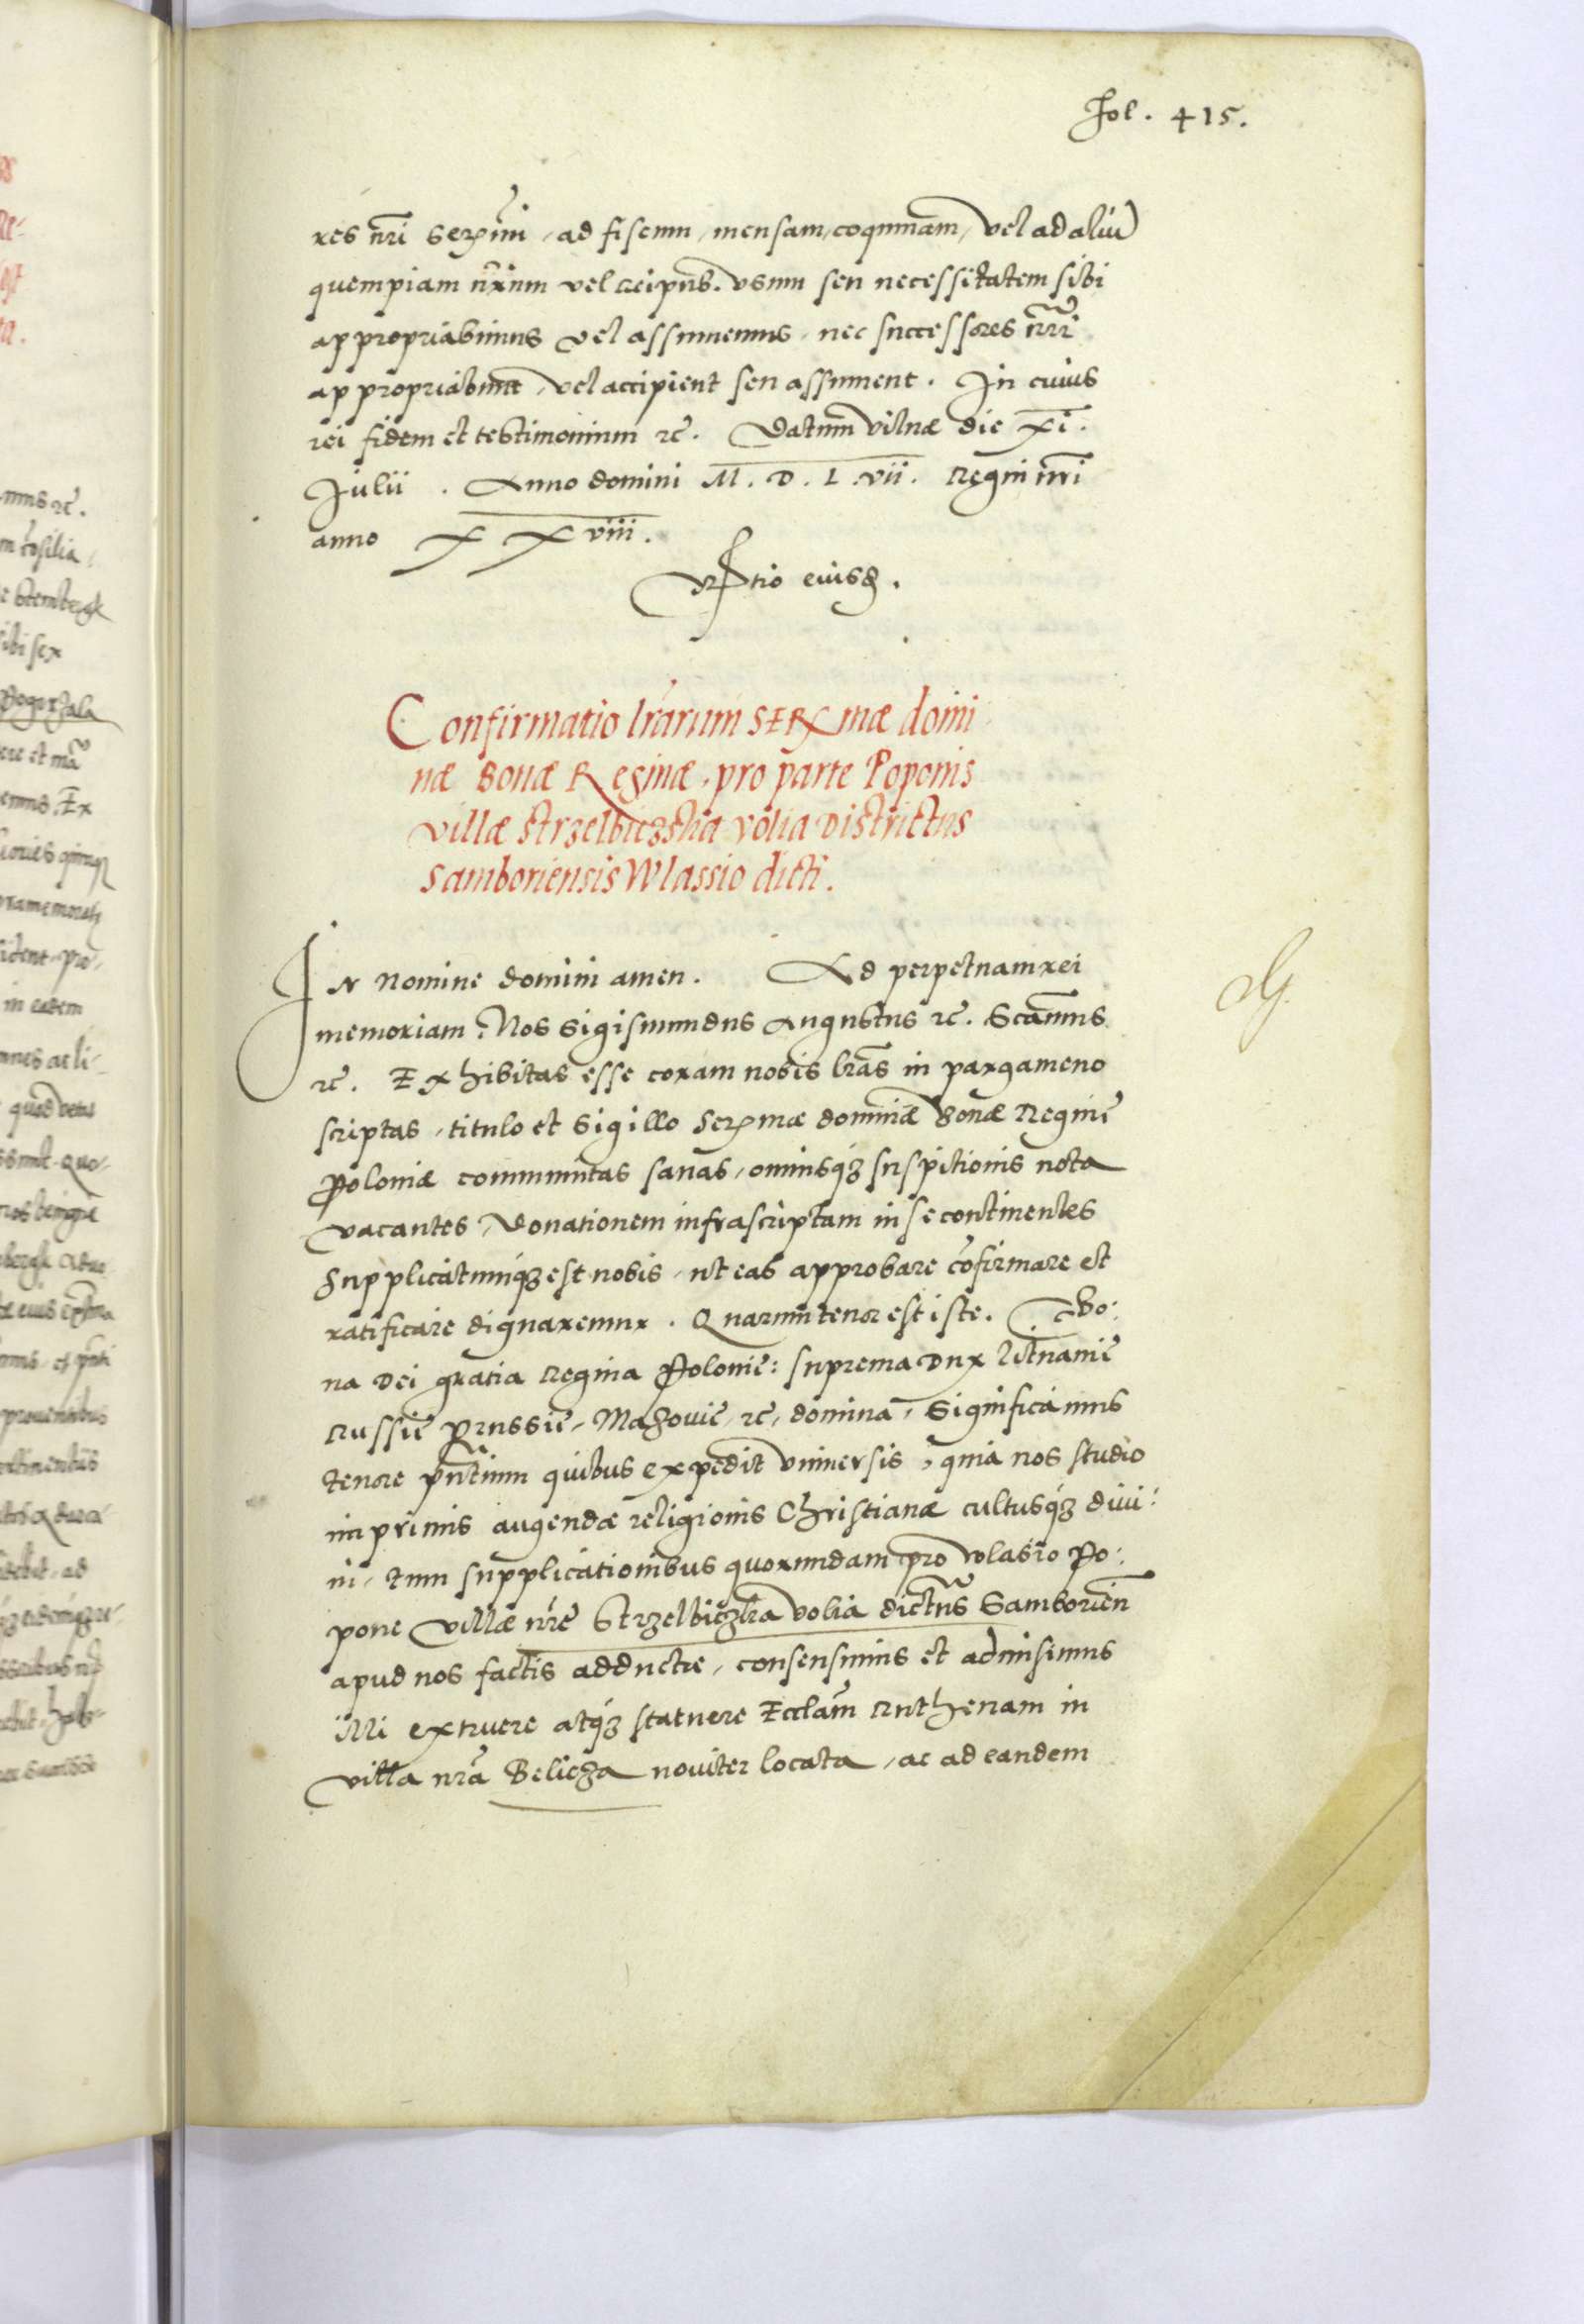 Fol. 415.
res nr̃i Serẽmi, ad fiscum, mensam, coquinam, vel ad aliũ
quempiam nr̃um vel Reipub. vsum seu necessitatem sibi
appropriabimus vel assumemus, nec successores nr̃i
appropriabunt, vel accipient seu assument. In cuius
rei fidem et testimonium rc̃. Datum Vilnæ die XI.
Julii. Anno domini M. D. L. vii. Regni nr̃i
anno XXviii.
eiusd.
Confirmatio lr̃arum SERmæ domi
næ Bonæ Reginæ, pro parte Poponis
villæ Strzelbiczska volia Districtus
Samboriensis Wlassio dicti.
IN Nomine domini amen. Ad perpetuam rei
memoriam. Nos Sigismundus Augustus rc̃. Scamus
rc̃. Exhibitas esse coram nobis lr̃as in pargameno
scriptas, titulo et Sigillo Sermæ dominæ Bonæ Reginæ
Poloniæ communitas sanas, omnisq3 suspitionis nota
vacantes, Donationem infrascriptam in se continentes
Supplicatumq3 est nobis, ut eas approbare cõfirmare et
ratificare dignaremur. Quarum tenor est iste. Bo:
na Dei gratia Regina Polonie: suprema Dux Litnanie
Russie Prussie, Mazouie, rc̃, domina, Significamus
tenore pñtium quibus expedit vniuersis, quia nos studio
imprimis augendæ religionis Christianæ cultusq3 diui:
ni, tum supplicationibus quorundam pro Wlasio Po:
pone villæ nr̃e Strzelbiczka volia dictus Samborieñ
apud nos factis adductæ, consensimus et admisimus
illi extruere atq3 statuere Eccl̃am Ruthenam in
villa nr̃a Belicza nouiter locata, ac ad eandem